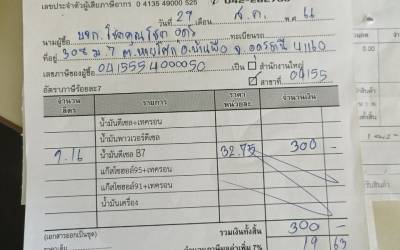 เลขประจำตัวผู้เสียภาษีอากร 0 4135 49000 525
วันที่ 29 เดือน ส.ค. พ.ศ. 66
นามผู้ซื้อ บจก. โชคคูณโชค ทะเบียนรถ
ที่อยู่ 308 ม.7 ต.เขือน้ำ อ.บ้านผือ จ.อุดรธานี 41160
เลขภาษีของผู้ซื้อ 0415554000050 เป็น สำนักงานใหญ่
อัตราภาษีร้อยละ7 สาขาที่ 04155
จำนวนลิตร รายการ ราคาหน่วยละ จำนวนเงิน
น้ำมันดีเซล+เทครอน
น้ำมันพาวเวอร์ดีเซล
9.16 น้ำมันดีเซล B7 32.75 300 -
แก๊สโซฮอล์95+เทครอน
แก๊สโซฮอล์91+เทครอน
น้ำมันเครื่อง
(เอกสารออกเป็นชุด) รวมเงินทั้งสิ้น 300 -
จำนวนภาษีมูลค่าเพิ่ม 7% 19 63